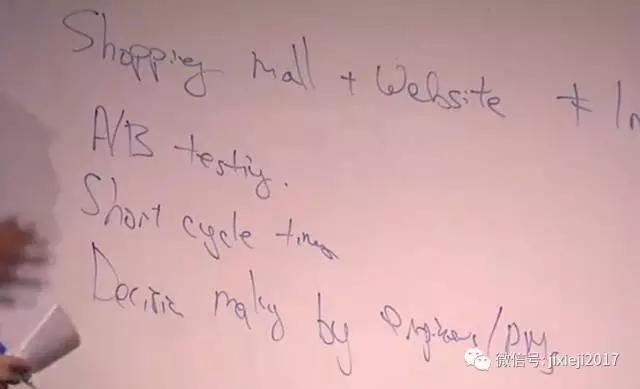 Shopping mall + Website ≠ In
A/B testig.
Short cycle times
Decisin makig by engineers/PMs
微信号: jixieji2017